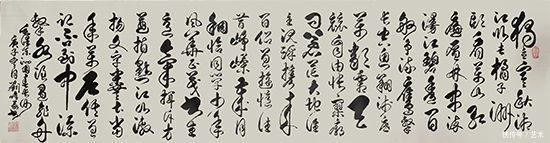 独立寒秋湘
江北去橘子洲
头看万山红
遍层林尽染
漫江碧透百
舸争流鹰击
长空鱼翔浅底
万类霜天
竞自由怅寥廓
问苍茫大地谁
主沉浮携来
百侣曾游忆往
昔峥嵘岁月
稠恰同学少年
风华正茂书生
意气挥斥方
遒指点江山激
扬文字粪土当
年万户侯曾
记否到中流
击水浪遏飞舟
毛泽东沁园春长沙